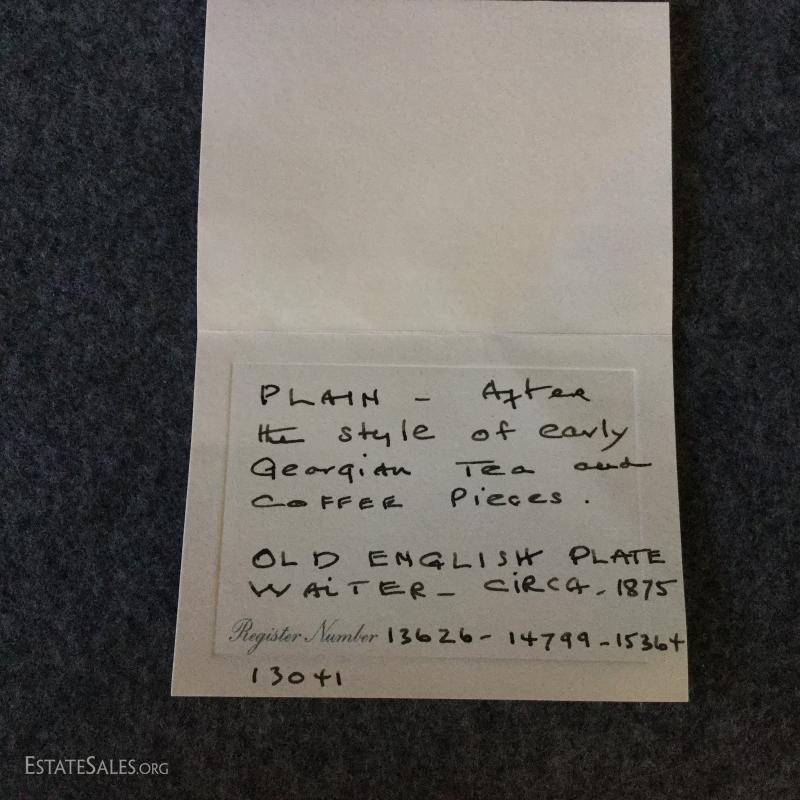 PLAIN - After
the style of early
Georgian Tea and
COFFEE Pieces.
OLD ENGLISH PLATE
WAITER - CIRCA - 1875
Register Number 13626 - 14799 - 15364
13041
ESTATESALES.ORG